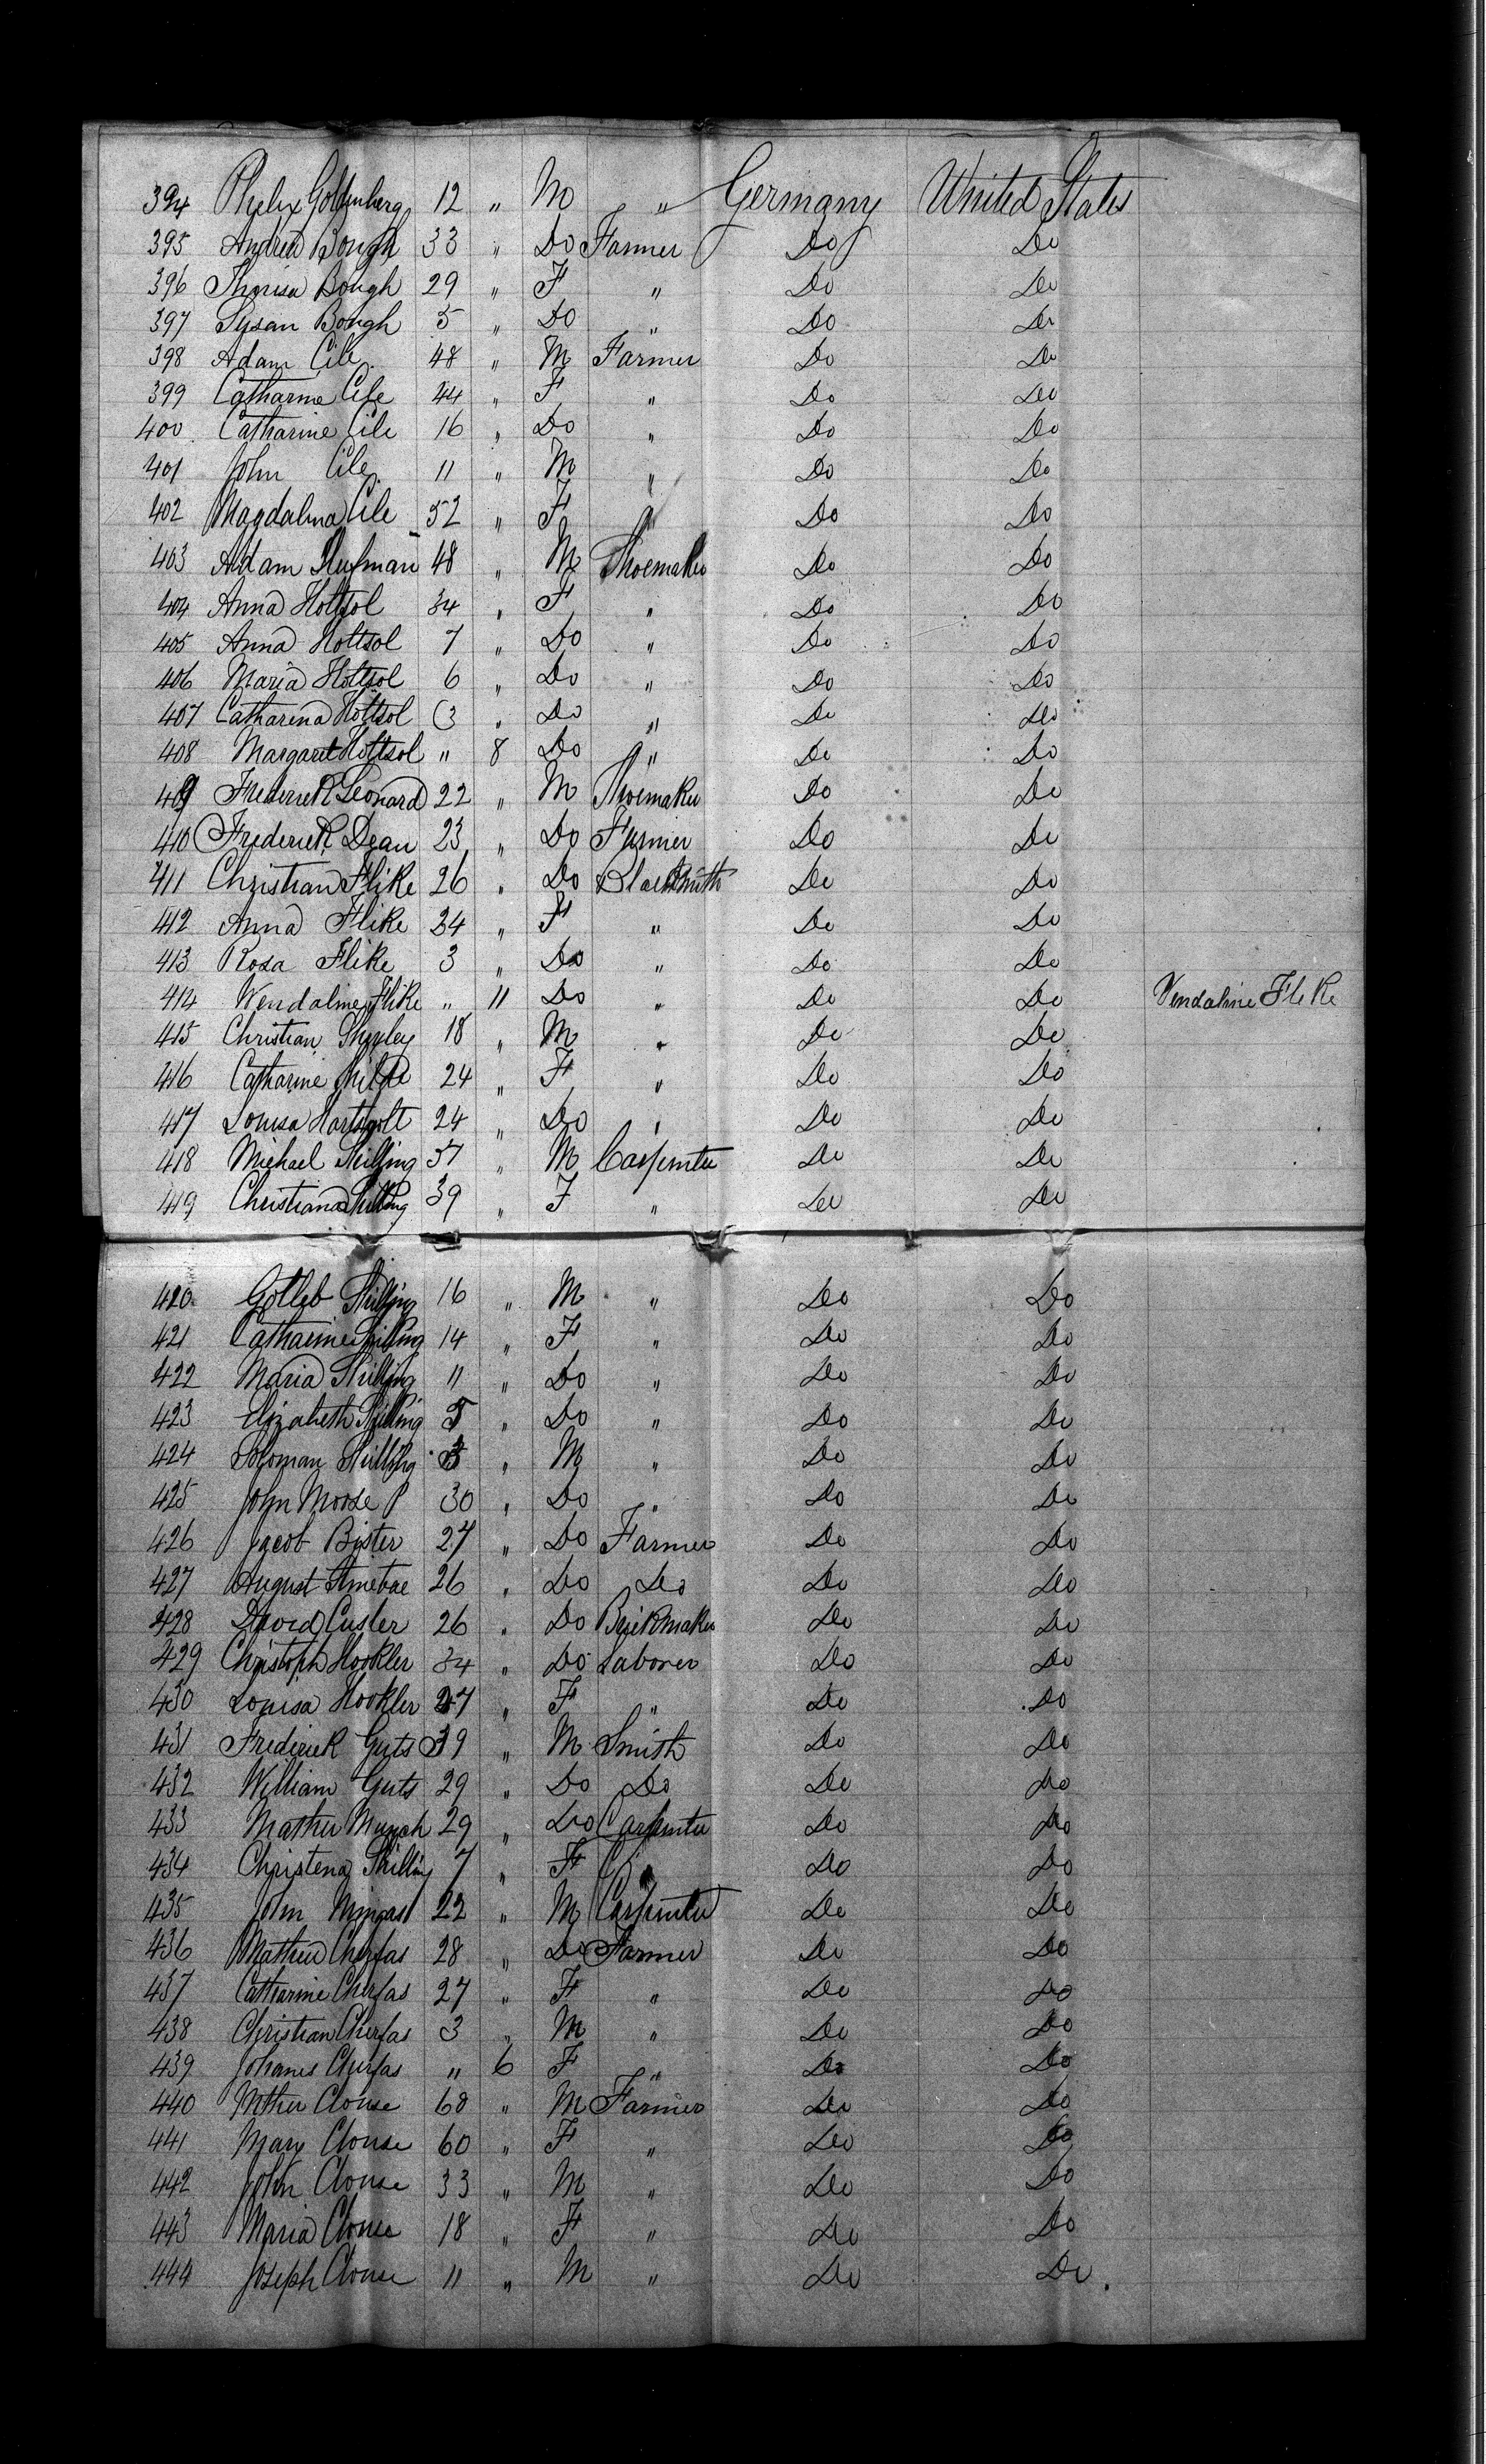 394 Phelix Goldenberg 12 " M " Germany United States
395 Andrea Bough 33 " Do Farmer Do Do
396 Theresa Bough 29 " F " Do Do
397 Susan Bough 5 " Do " Do Do
398 Adam Cile 48 " M Farmer Do Do
399 Catharine Cile 44 " F " Do Do
400 Catharine Cile 16 " Do " Do Do
401 John Cile 11 " M " Do Do
402 Magdalina Cile 52 " F " Do Do
403 Adam 48 " M Shoemaker Do Do
404 Anna Hottsol 34 " F " Do Do
405 Anna Hottsol 7 " Do " Do Do
406 Maria Hottsol 6 " Do " Do Do
407 Catharina Hottsol 3 " Do " Do Do
408 Margaret Hottsol " 8 Do " Do Do
409 Frederick Leonard 22 " M Shoemaker Do Do
410 Frederick Dean 23 " Do Farmer Do Do
411 Christian Flike 26 " Do Blacksmith Do Do
412 Anna Flike 24 " F " Do Do
413 Rosa Flike 3 " Do " Do Do
414 Wendaline Flike " 11 Do " Do Do Vendaline Flike
415 Christian 18 " M " Do Do
416 Catharine 24 " F " Do Do
417 Louisa 24 " Do " Do Do
418 Michael Skilling 51 " M Carpenter Do Do
419 Christiana Skilling 39 " F " Do Do
420 Gotleb Skilling 16 " M " Do Do
421 Catharine Skilling 14 " F " Do Do
422 Maria Skilling 11 " Do " Do Do
423 Elizabeth Skilling 5 " Do " Do Do
424 Soloman Skilling " M " Do Do
425 John Moose 30 " Do " Do Do
426 Jacob Bister 27 " Do Farmer Do Do
427 August 26 " Do Do Do Do
428 David Cusler 26 " Do Brickmaker Do Do
429 Christoph Hookler 34 " Do Laborer Do Do
430 Louisa Hookler 27 " F " Do Do
431 Frederick Guts 39 " M Smith Do Do
432 William Guts 29 " Do Do Do Do
433 Mather 29 " Do Carpenter Do Do
434 Christena Skilling 7 " F " Do Do
435 John 22 " M Carpenter Do Do
436 Mathew Cherfas 28 " Do Farmer Do Do
437 Catharine Cherfas 27 " F " Do Do
438 Christian Cherfas 3 " M " Do Do
439 Johanes Cherfas " 6 F " Do Do
440 Mother Clouse 68 " M Farmer Do Do
441 Mary Clouse 60 " F " Do Do
442 John Clouse 33 " M " Do Do
443 Maria Clouse 18 " F " Do Do
444 Joseph Clouse 11 " M " Do Do